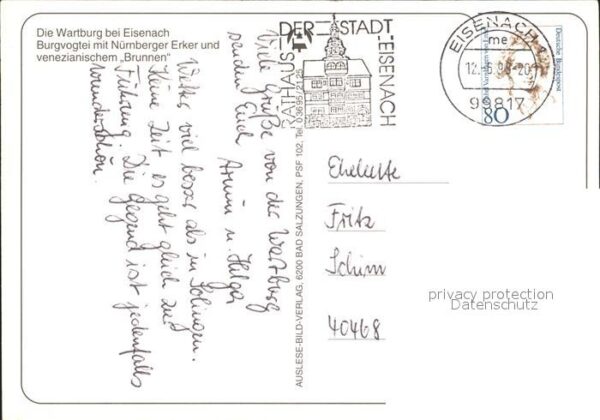 Die Wartburg bei Eisenach
Burgvogtei mit Nürnberger Erker und
venezianischem „Brunnen"
Viele Grüße von der Wartburg
senden Euch
Armin u. Helga
Wetter viel besser als in Solingen.
Keine Zeit es geht gleich zur
Führung. Die Gegend ist jedenfalls
wunderschön.
AUSLESE-BILD-VERLAG, 6200 BAD SALZUNGEN, PSF 102, Tel. 0 36 95/21 25
RATHAUS
DER STADT
EISENACH
EISENACH
me
99817
Deutsche Bundespost
80
Eheleute
Fritz
Schim
40468
privacy protection
Datenschutz